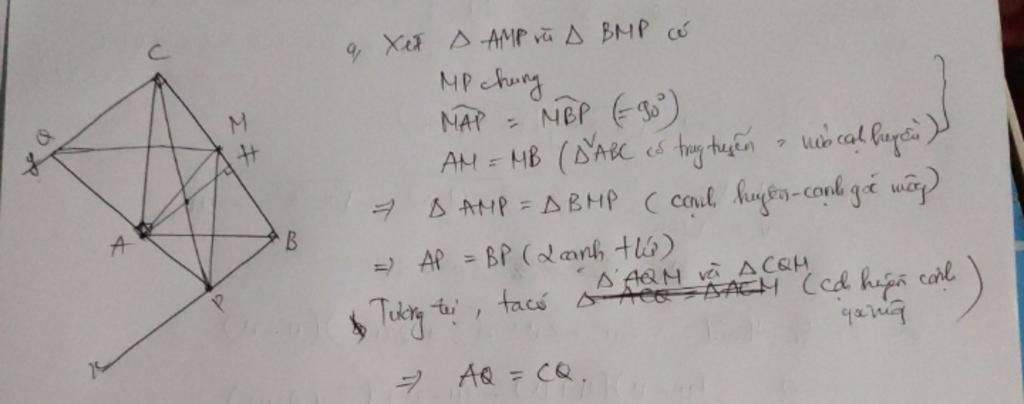 C
Q
y
M
H
A
B
P
x
a, Xét Δ AMP và Δ BMP có
MP chung
MAP = MBP (= 90°)
AM = MB (Δ ABC có trung tuyến = nửa cạnh huyền)
=> Δ AMP = Δ BMP (cạnh huyền - cạnh góc vuông)
=> AP = BP (2 cạnh tứ)
Δ AQM và Δ CQM
Tương tự, ta có Δ ACQ = Δ ACM (cạh huyền cạnh
góc vuông)
=> AQ = CQ.